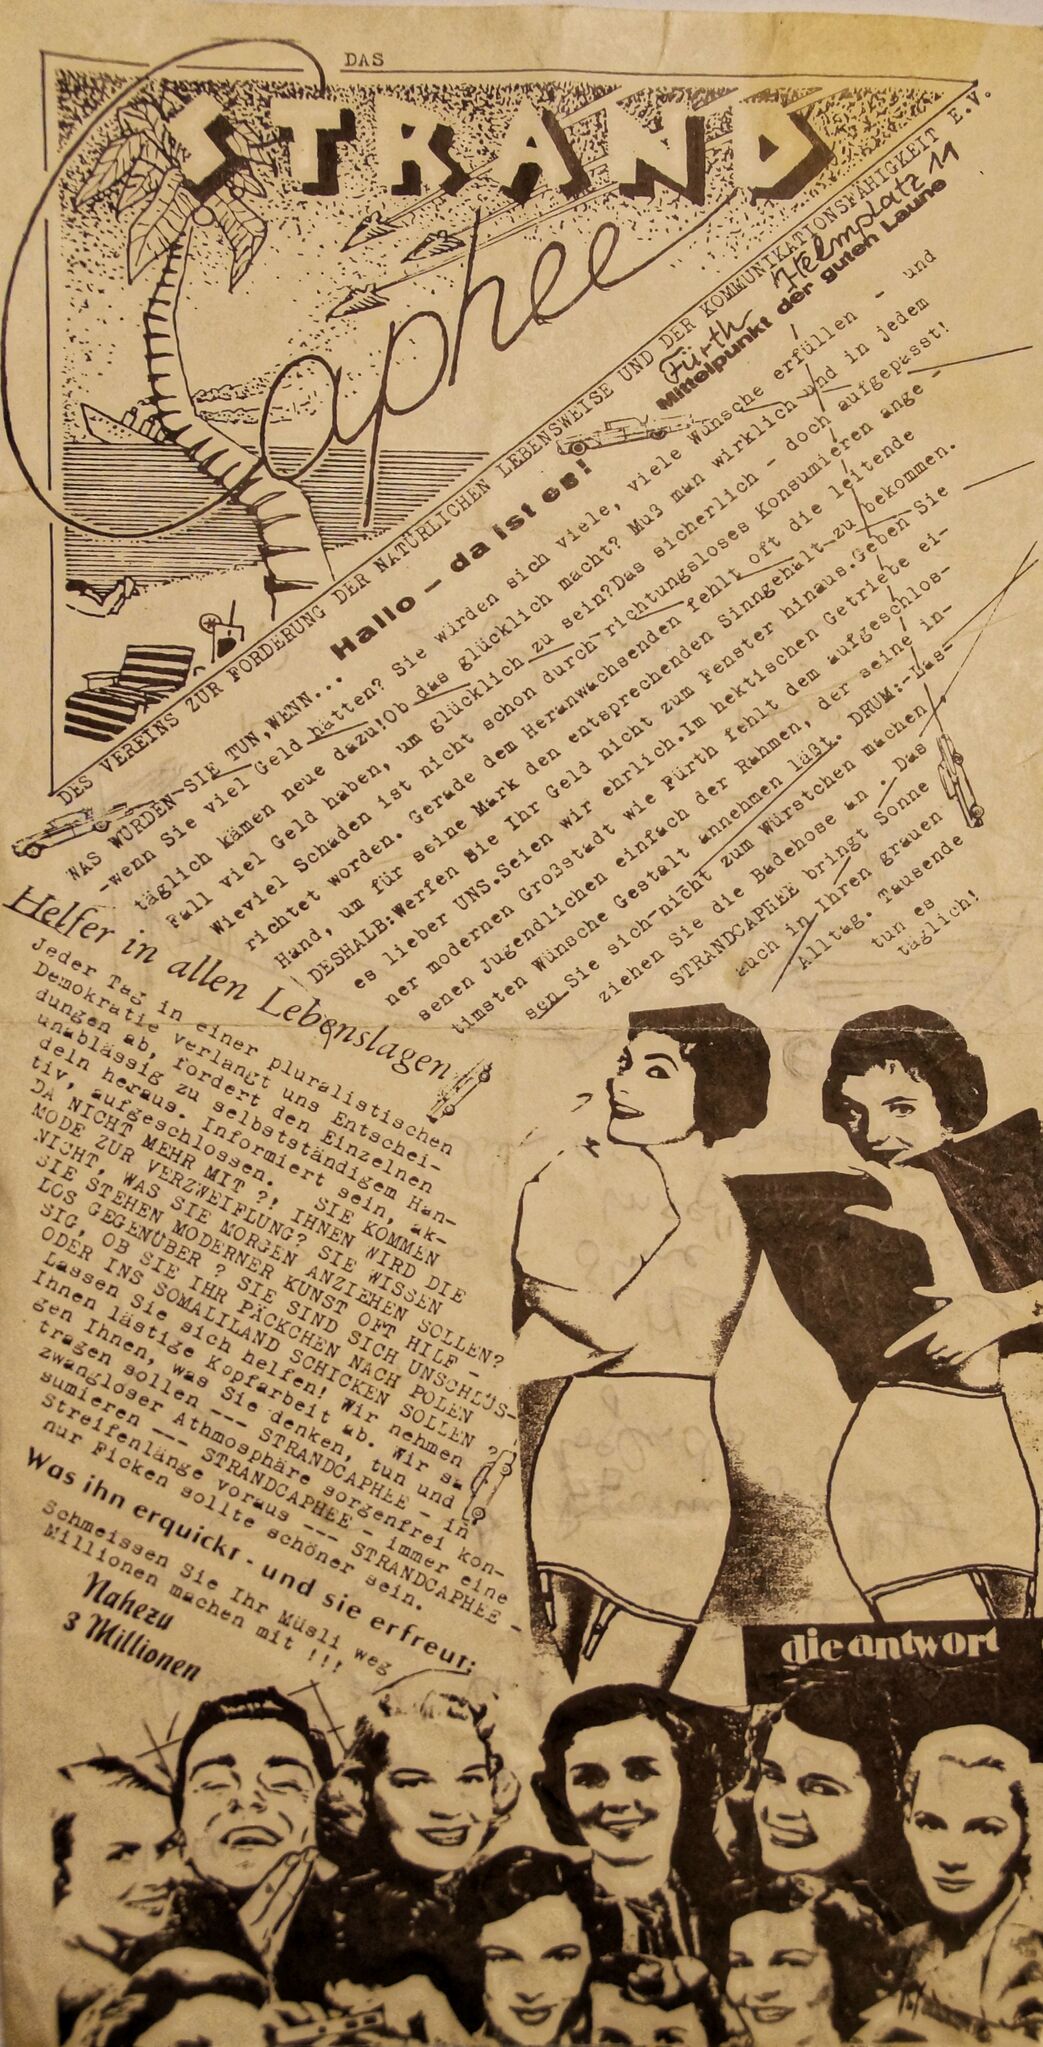 DAS
STRAND
Caphee
DES VEREINS ZUR FÖRDERUNG DER NATÜRLICHEN LEBENSWEISE UND DER KOMMUNIKATIONSFÄHIGKEIT E.V.
Fürth Helmplatz 11
Mittelpunkt der guten Laune
Hallo - da ist es!
WAS WÜRDEN-SIE TUN,WENN...
-wenn Sie viel Geld hätten? Sie würden sich viele, viele Wünsche erfüllen - und
täglich kämen neue dazu!Ob das glücklich macht? Muß man wirklich und in jedem
Fall viel Geld haben, um glücklich zu sein?Das sicherlich - doch aufgepasst!
Wieviel Schaden ist nicht schon durch richtungsloses Konsumieren ange-
richtet worden. Gerade dem Heranwachsenden fehlt oft die leitende
Hand, um für seine Mark den entsprechenden Sinngehalt zu bekommen.
DESHALB:Werfen Sie Ihr Geld nicht zum Fenster hinaus.Geben Sie
es lieber UNS.Seien wir ehrlich.Im hektischen Getriebe ei-
ner modernen Großstadt wie Fürth fehlt dem aufgeschlos-
senen Jugendlichen einfach der Rahmen, der seine in-
timsten Wünsche Gestalt annehmen läßt. DRUM:-Las-
sen Sie sich-nicht zum Würstchen machen,
ziehen Sie die Badehose an. Das
STRANDCAPHEE bringt Sonne
auch in Ihren grauen
Alltag. Tausende
tun es
täglich!
Helfer in allen Lebenslagen
Jeder Tag in einer pluralistischen
Demokratie verlangt uns Entschei-
dungen ab, fordert den Einzelnen
unablässig zu selbstständigem Han-
deln heraus. Informiert sein, ak-
tiv, aufgeschlossen. SIE KOMMEN
DA NICHT MEHR MIT ?! IHNEN WIRD DIE
MODE ZUR VERZWEIFLUNG? SIE WISSEN
NICHT, WAS SIE MORGEN ANZIEHEN SOLLEN?
SIE STEHEN MODERNER KUNST OFT HILF -
LOS GEGENÜBER ? SIE SIND SICH UNSCHLÜS-
SIG, OB SIE IHR PÄCKCHEN NACH POLEN
ODER INS SOMALILAND SCHICKEN SOLLEN ?
Lassen Sie sich helfen! Wir nehmen
Ihnen lästige Kopfarbeit ab. Wir sa
gen Ihnen, was Sie denken, tun und
tragen sollen --- STRANDCAPHEE - in
zwangloser Athmosphäre sorgenfrei kon-
sumieren --- STRANDCAPHEE - immer eine
Streifenlänge voraus --- STRANDCAPHEE -
nur Ficken sollte schöner sein.
Was ihn erquickt - und sie erfreut:
Schmeissen Sie Ihr Müsli weg -
Millionen machen mit !!!
Nahezu
3 Millionen
die antwort